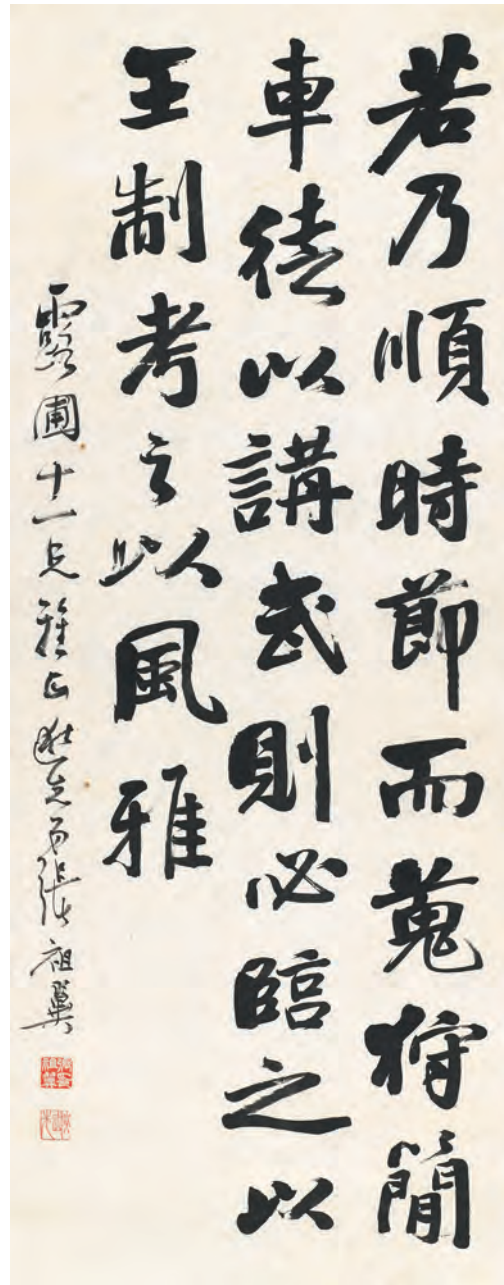 若乃順時節而蒐狩簡
車徒以講武則必臨之以
王制考之以風雅
露圃十一兄雅正逖先弟張祖翼